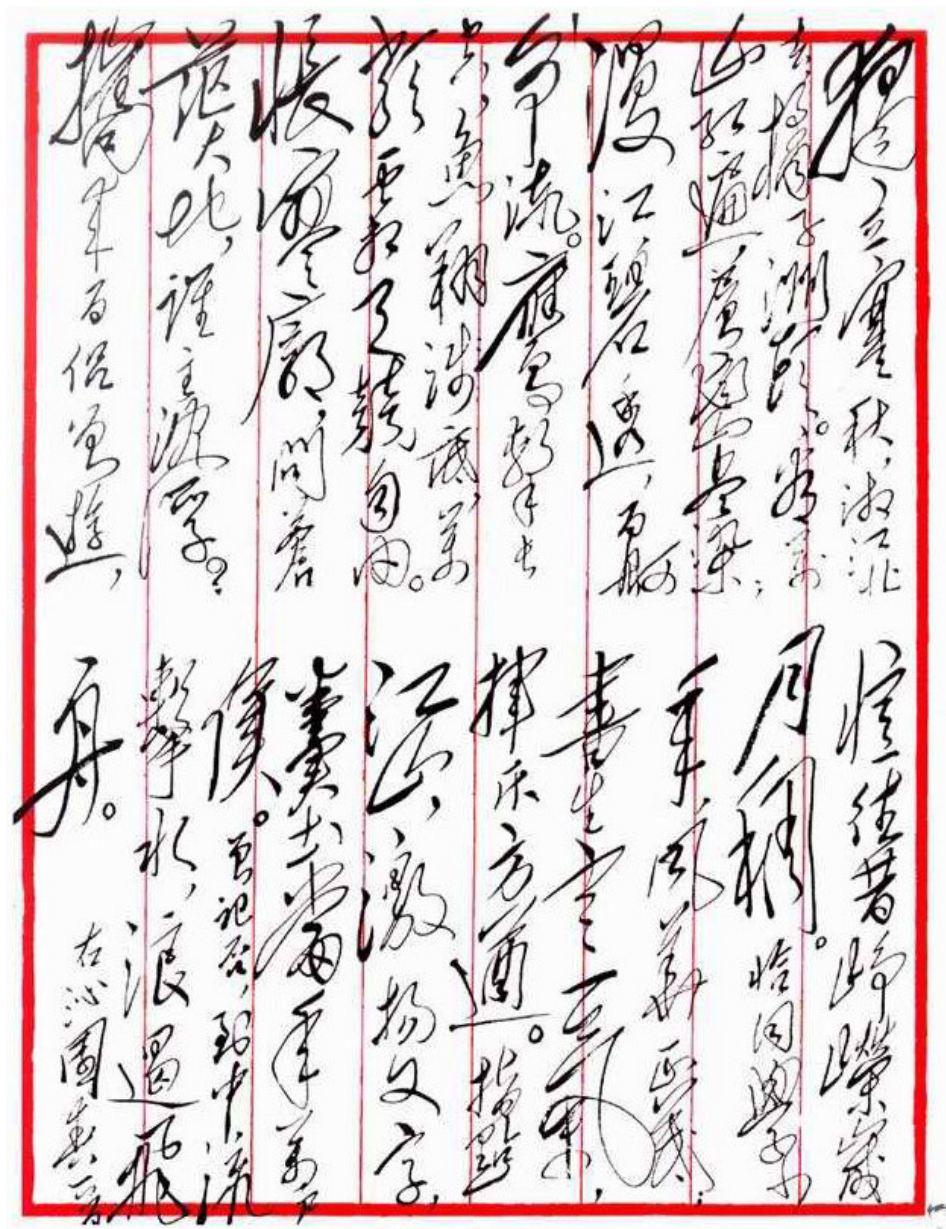 獨立寒秋,湘江北
去,橘子洲頭。看萬
山紅遍,層巒盡染;
漫江碧透,百舸
爭流。鷹擊長
空,魚翔淺底,萬
類霜天競自由。
悵寥廓,問蒼
茫大地,誰主沉浮?
攜來百侶曾遊,
憶往昔崢嶸歲
月稠。恰同學少
年,風華正茂;
書生意氣,
揮斥方遒。指點
江山,激揚文字,
糞土當年萬戶
侯。曾記否,到中流
擊水,浪遏飛
舟。
右沁園春一首